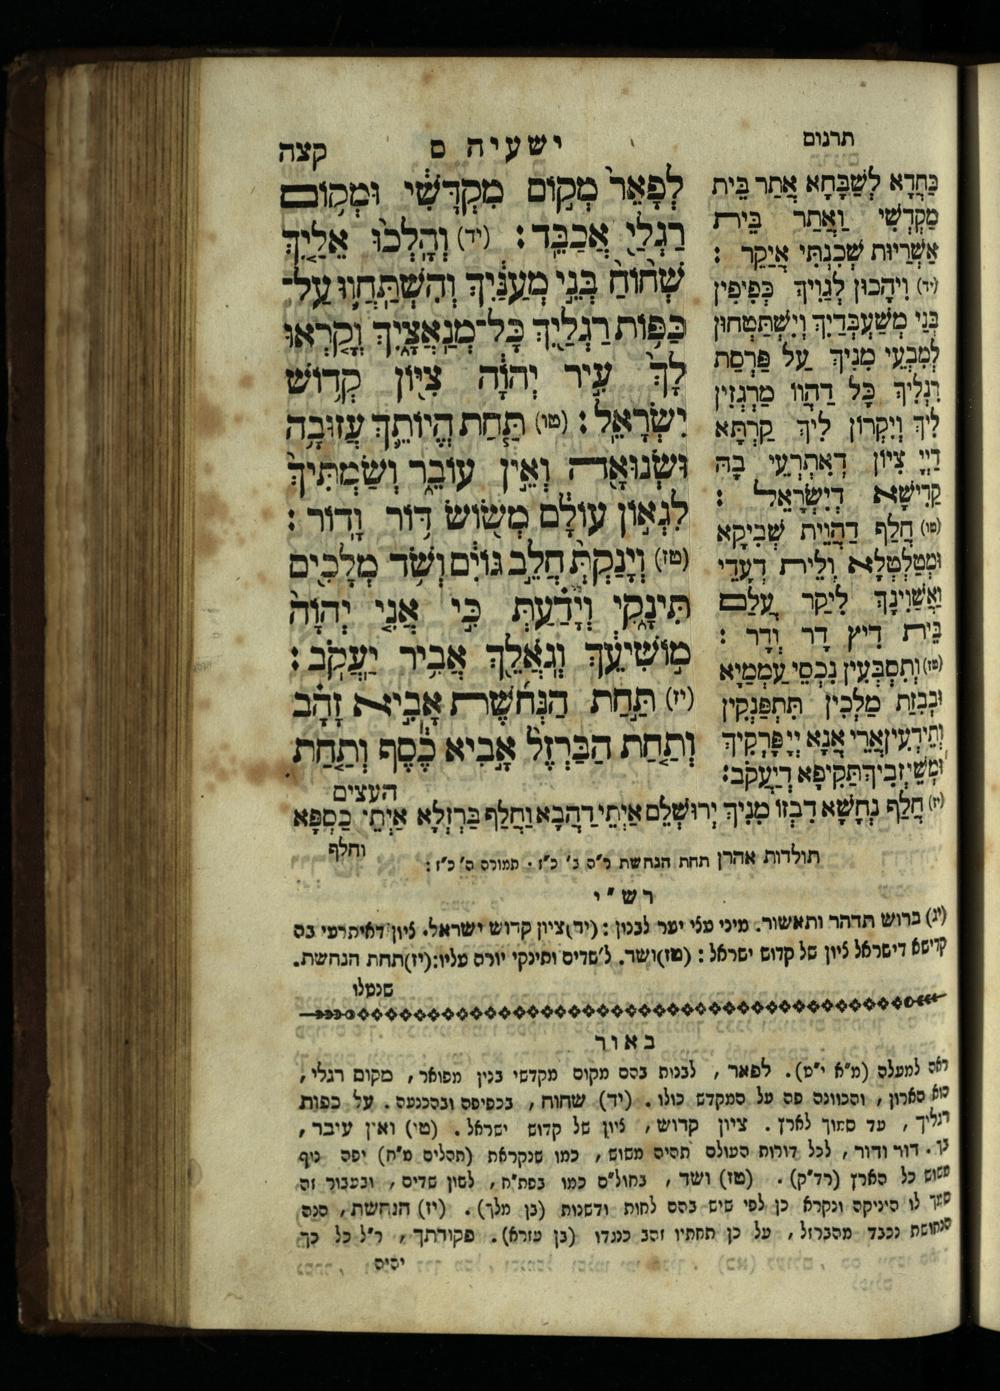 תרגום
ישעיה ס
קצה
לְפָאֵר֙ מְק֣וֹם מִקְדָּשִׁ֔י וּמְק֥וֹם
רַגְלַ֖י אֲכַבֵּֽד׃ (יד) וְהָלְכ֨וּ אֵלַ֤יִךְ
שְׁח֙וֹחַ֙ בְּנֵ֣י מְעַנַּ֔יִךְ וְהִֽשְׁתַּחֲו֛וּ עַל־
כַּפּ֥וֹת רַגְלַ֖יִךְ כׇּל־מְנַאֲצָ֑יִךְ וְקָ֤רְאוּ
לָךְ֙ עִ֣יר יְהֹוָ֔ה צִיּ֖וֹן קְד֥וֹשׁ
יִשְׂרָאֵֽל׃ (טו) תַּ֧חַת הֱיוֹתֵ֛ךְ עֲזוּבָ֥ה
וּשְׂנוּאָ֖ה וְאֵ֣ין עוֹבֵ֑ר וְשַׂמְתִּיךְ֙
לִגְא֣וֹן עוֹלָ֔ם מְשׂ֖וֹשׂ דּ֥וֹר וָדֽוֹר׃
(טז) וְיָנַקְתְּ֙ חֲלֵ֣ב גּוֹיִ֔ם וְשֹׁ֥ד מְלָכִ֖ים
תִּינָ֑קִי וְיָדַ֗עַתְּ כִּ֣י אֲנִ֤י יְהֹוָה֙
מֽוֹשִׁיעֵ֔ךְ וְגֹאֲלֵ֖ךְ אֲבִ֥יר יַעֲקֹֽב׃
(יז) תַּ֣חַת הַנְּחֹ֜שֶׁת אָבִ֣יא זָהָ֗ב
וְתַ֤חַת הַבַּרְזֶל֙ אָ֣בִיא כֶ֔סֶף וְתַ֤חַת
העצים
כַּחֲדָא לְשַׁבָּחָא אֲתַר בֵּית
מַקְדְּשִׁי וַאֲתַר בֵּית
אַשְׁרָיוּת שְׁכִנְתִּי אֲיַקַר :
(יד) וִיהָכוּן לְגַוֵיךְ כְּפִיפִין
בְּנֵי מְשַׁעְבְּדַיִךְ וְיִשְׁתַּטְחוּן
לְמִבְעֵי מִנֵיךְ עַל פַּרְסַת
רַגְלֵיךְ כָּל דַהֲווֹ מַרְגְזִין
לִיךְ וְיִקְרוּן לִיךְ קַרְתָּא
דַיְיָ צִיוֹן דְאִתְרְעֵי בָהּ
קַדִישָׁא דְיִשְׂרָאֵל :
(טו) חֲלַף דַהֲוֵית שְׁבִיקָא
וּמְטַלְטְלָא וְלֵית דְעָדֵי
וַאֲשַׁוִינָךְ לִיקַר עָלַם
בֵּית דִיץ דָר וְדָר :
(טז) וְתִסְבְּעִין נִכְסֵי עַמְמַיָא
וּבְבִזַת מַלְכִין תִּתְפַּנְקִין
וְתֵידְעִין אֲרֵי אֲנָא יְיָ פָּרְקִיךְ
וּמְשֵׁיזְבִיךְ תַּקִיפָא דְיַעֲקֹב:
(יז) חֲלַף נְחָשָׁא דִבְזוֹ מִנִיךְ יְרוּשְׁלֵם אַיְתֵי דַהֲבָא וַחֲלַף בַּרְזְלָא אַיְתֵי כַסְפָּא
וחלף
תולדות אהרן תחת הנחשת ר״ה כ׳ כ״ז ·
רש״י
(יג) ברוש תדהר ותאשור. מיני עלי יער לבנון : (יד) ציון קדוש ישראל. ציון דאיתרעי בה
קדישא דישראל ציון של קדוש ישראל : (טז) ושד. ל׳ שדים ותינקי יורה עליו: (יז) תחת הנחשת.
שנטלו
באור
ראה למעלה (מ״א י״ט). לפאר, לבנות בהם מקום מקדשי בנין מפואר, מקום רגלי,
הוא הארון, והכוונה פה על המקדש כולו. (יד) שחוח, בכפיפה ובהכנעה. על כפות
רגליך, עד סמוך לארץ. ציון קדוש, ציון של קדוש ישראל. (טי) ואין עיבר,
בך. דור ודור, לכל דורות העולם תהיה משוש, כמו שנקראת (תהלים מ״ח) יפה נוף
משוש כל הארץ (רד״ק). (טז) ושד, בחול״ם כמו בפת״ח, לשון שדים, ובעבור זה
סמך לו היניקה ונקרא כן לפי שיש בהם לחות ודשנות (בן מלך). (יז) הנחשת, הנה
הנחושת נכבד מהברזל, על כן תחתיו זהב כנגדו (בן עזרא). פקודתך, ר״ל כל כך
יהיה